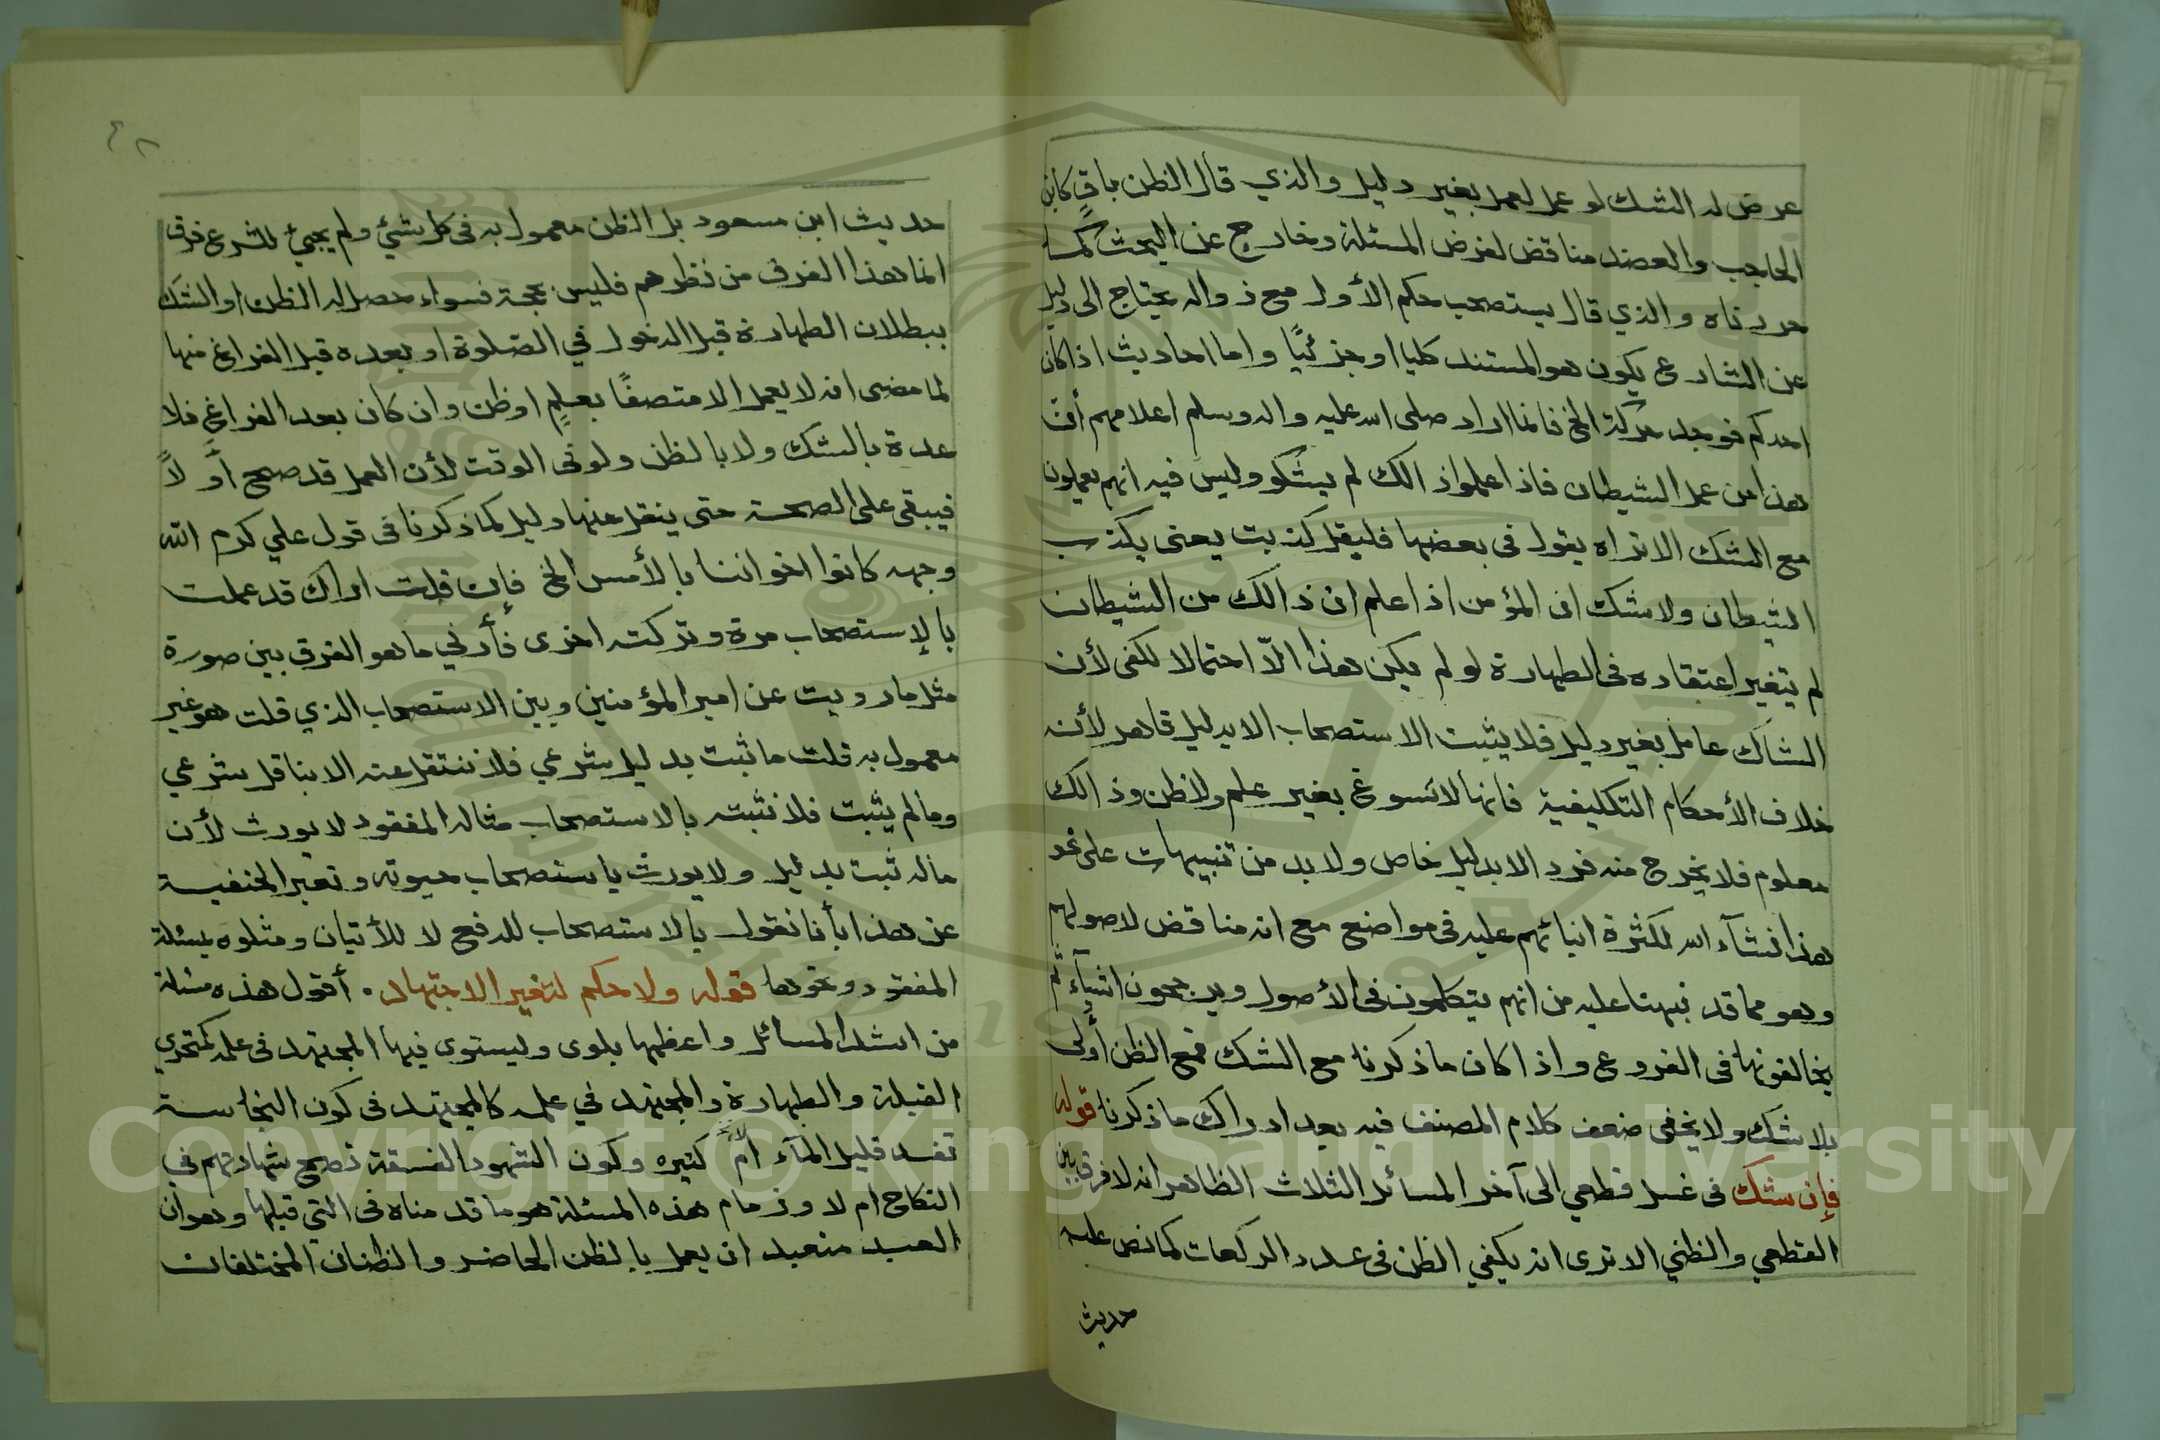 عرض له الشك لو عمل لعمل بغير دليل والذي قال الظن باقٍ كابن
الحاجب والعضد مناقض لفرض المسئلة وخارج عن البحث كما
حررناه والذي قال يستصحب حكم الأول مع زواله يحتاج الى دليل
عن الشارع يكون هو المستند كليا او جزئيًا واما احاديث اذا كان
احدكم فوجد حركة الخ فانما اراد صلى الله عليه واله وسلم اعلامهم أن
هذا من عمل الشيطان فاذا علموا ذالك لم يشكو وليس فيه انهم يعملون
مع الشك الا تراه يقول في بعضها فليقل كذبت يعني يكذب
الشيطان ولا شك ان المؤمن اذا علم ان ذالك من الشيطان
لم يتغير اعتقاده في الطهارة لو لم يكن هذا الّا احتمالا لكفى لأن
الشاك عامل بغير دليل فلا يثبت الاستصحاب الا بدليل قاهر لأنه
خلاف الأحكام التكليفية فانها لا تسوغ بغير علم ولا ظن وذالك
معلوم فلا يخرج منه فرد الا بدليل خاص ولا بد من تنبيهات على نحو
هذا انشآء الله لكثرة انبائهم عليه في مواضع مع انه مناقض لاصولهم
وهو مما قد نبهنا عليه من انهم يتكلمون في الأصول ويرجحون اشيآء ثم
يخالفونها في الفروع واذا كان ما ذكرنا مع الشك فمع الظن أولى
بلا شك ولا يخفى ضعف كلام المصنف فيه بعد ادراك ما ذكرنا قوله
فإن شك في غسل قطعي الى آخر المسائل الثلاث الظاهر انه لا فرق بين
القطعي والظني الا ترى انه يكفي الظن في عدد الركعات كما نص عليه
حديث
٤٨
حديث ابن مسعود بل الظن معمول به في كل شئ ولم يجئ للشرع فرق
انما هذا الفرق من نظرهم فليس بحجة فسواء حصل له الظن او الشك
ببطلان الطهارة قبل الدخول في الصلوة او بعده قبل الفراغ منها
لما مضى انه لا يعمل الا متصفًا بعلمٍ او ظن وان كان بعد الفراغ فلا
عدة بالشك ولا بالظن ولو في الوقت لأن العمل قد صح أوّلاً
فيبقى على الصحة حتى ينقل عنها دليل كما ذكرنا في قول علي كرم الله
وجهه كانوا اخواننا بالأمس الخ فإن قلت اراك قد عملت
بالإستصحاب مرة وتركته اخرى فأرني ما هو الفرق بين صورة
مثل ما رويت عن امير المؤمنين وبين الاستصحاب الذي قلت هو غير
معمول به قلت ما ثبت بدليل شرعي فلا ننتقل عنه الا بناقل شرعي
وما لم يثبت فلا نثبته بالاستصحاب مثاله المفقود لا يورث لأن
ماله ثبت بدليل ولا يورث باستصحاب حيوته وتعبر الحنفية
عن هذا بأنا نقول بالاستصحاب للدفع لا للأتيان ومثلوه بمسئلة
المفقود ونحوها قوله ولا حكم لتغير الاجتهاد . أقول هذه مسئلة
من اشد المسائل واعظمها بلوى ويستوى فيها المجتهد في علمه كمتحري
القبلة والطهارة والمجتهد في علمه كالمجتهد في كون النجاسة
تفسد قليل المآء أم كثيره وكون الشهود الفسقة تصح شهادتهم في
النكاح ام لا وزمام هذه المسئلة هو ما قدمناه في التي قبلها وهو ان
العبد متعبد ان يعمل بالظن الحاضر والظنان المختلفان
Copyright © King Saud University